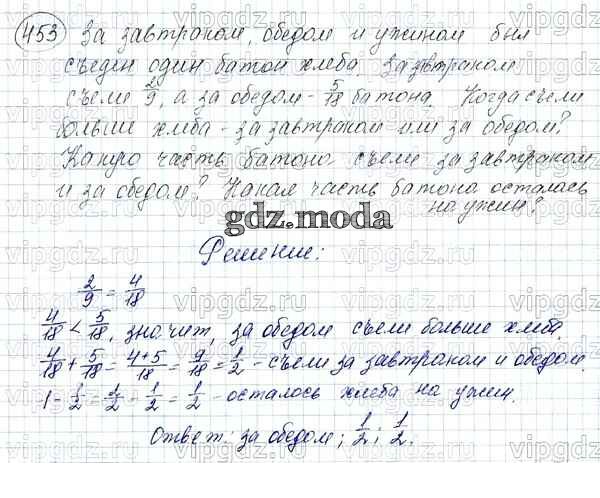 453 За завтраком, обедом и ужином был
съеден один батон хлеба. За завтраком
съели 2/9, а за обедом - 5/18 батона. Когда съели
больше хлеба - за завтраком или за обедом?
Какую часть батона съели за завтраком
и за обедом? Какая часть батона осталась
на ужин?
gdz.moda
Решение:
2/9 = 4/18
4/18 < 5/18, значит, за обедом съели больше хлеба.
4/18 + 5/18 = 4+5/18 = 9/18 = 1/2 - съели за завтраком и обедом.
1 - 1/2 = 2/2 - 1/2 = 1/2 - осталось хлеба на ужин.
Ответ: за обедом; 1/2; 1/2.
vipgdz